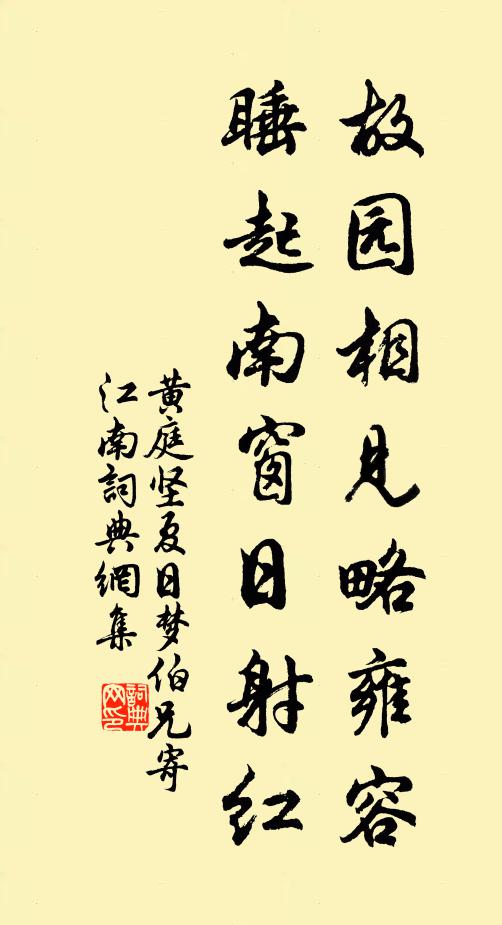 故园相见略雍容
睡起南窗日射红
黄庭坚夏日梦伯兄寄
江南詞典網集
詞典网印